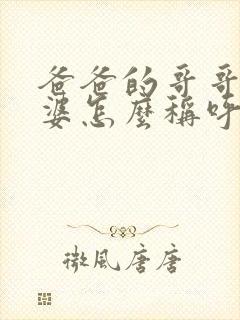 爸爸的哥哥
婆怎麼稱呼
微風唐唐